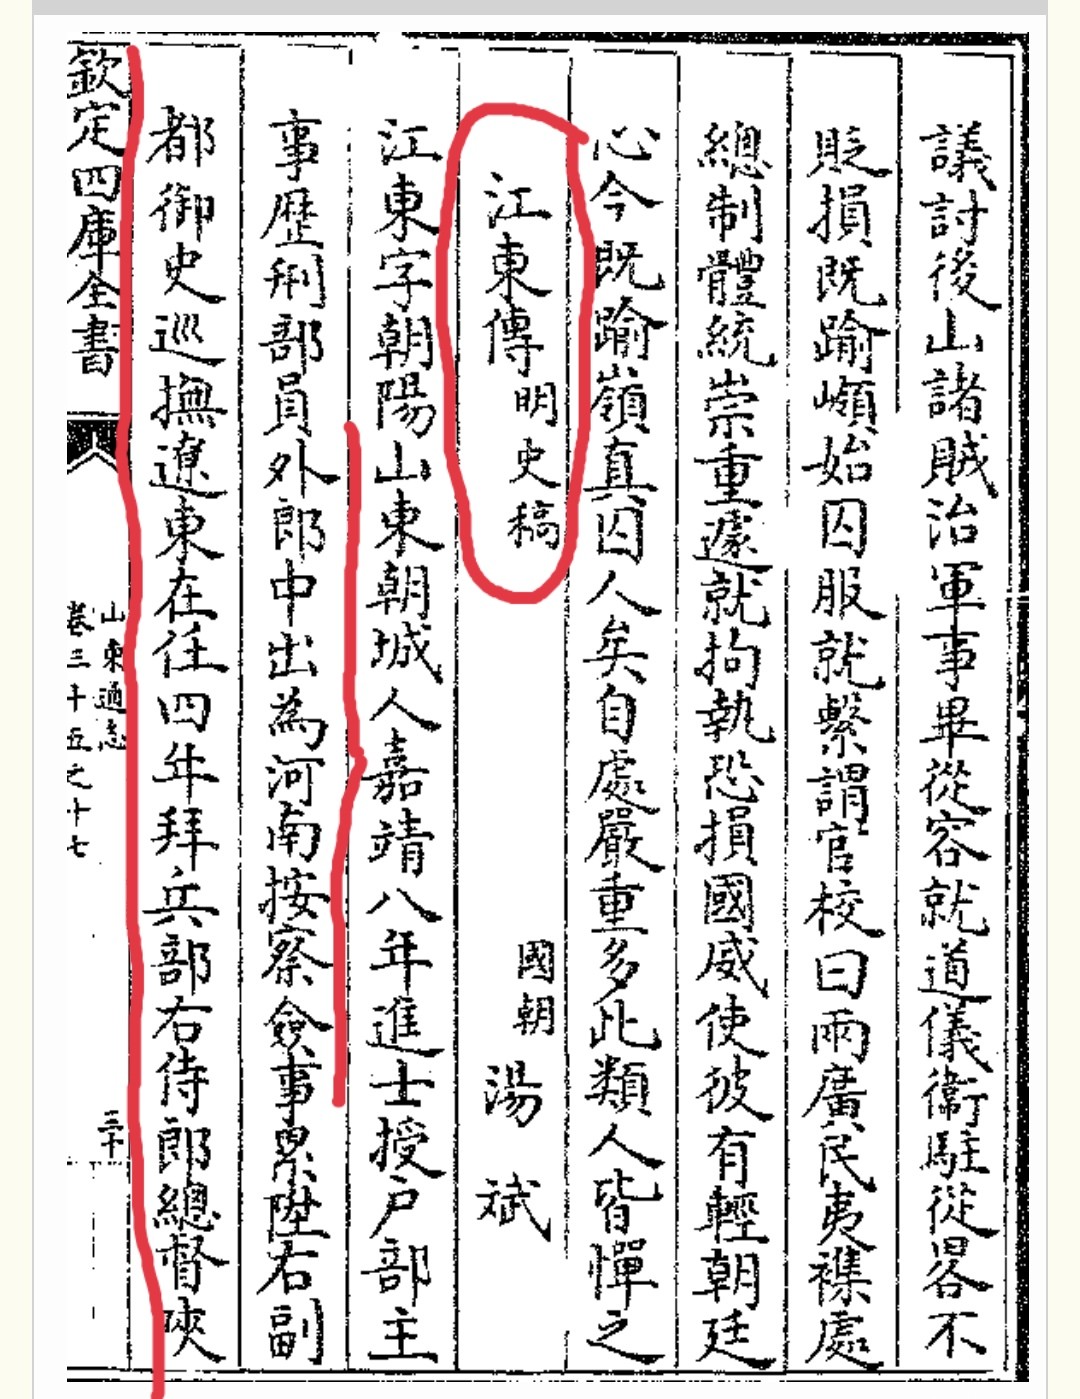 議討後山諸賊治軍事畢從容就道儀衛駐從畧不
貶損既踰嶺始囚服就繫謂官校曰兩廣民夷襍處
總制體統崇重遽就拘執恐損國威使彼有輕朝廷
心今既踰嶺真囚人矣自處嚴重多此類人皆憚之
江東傳明史稿 國朝湯斌
江東字朝陽山東朝城人嘉靖八年進士授户部主
事歴刑部員外郎中出為河南按察僉事累陞右副
都御史巡撫遼東在任四年拜兵部右侍郎總督陝
欽定四庫全書
山東通志
卷三十五之十七
三十